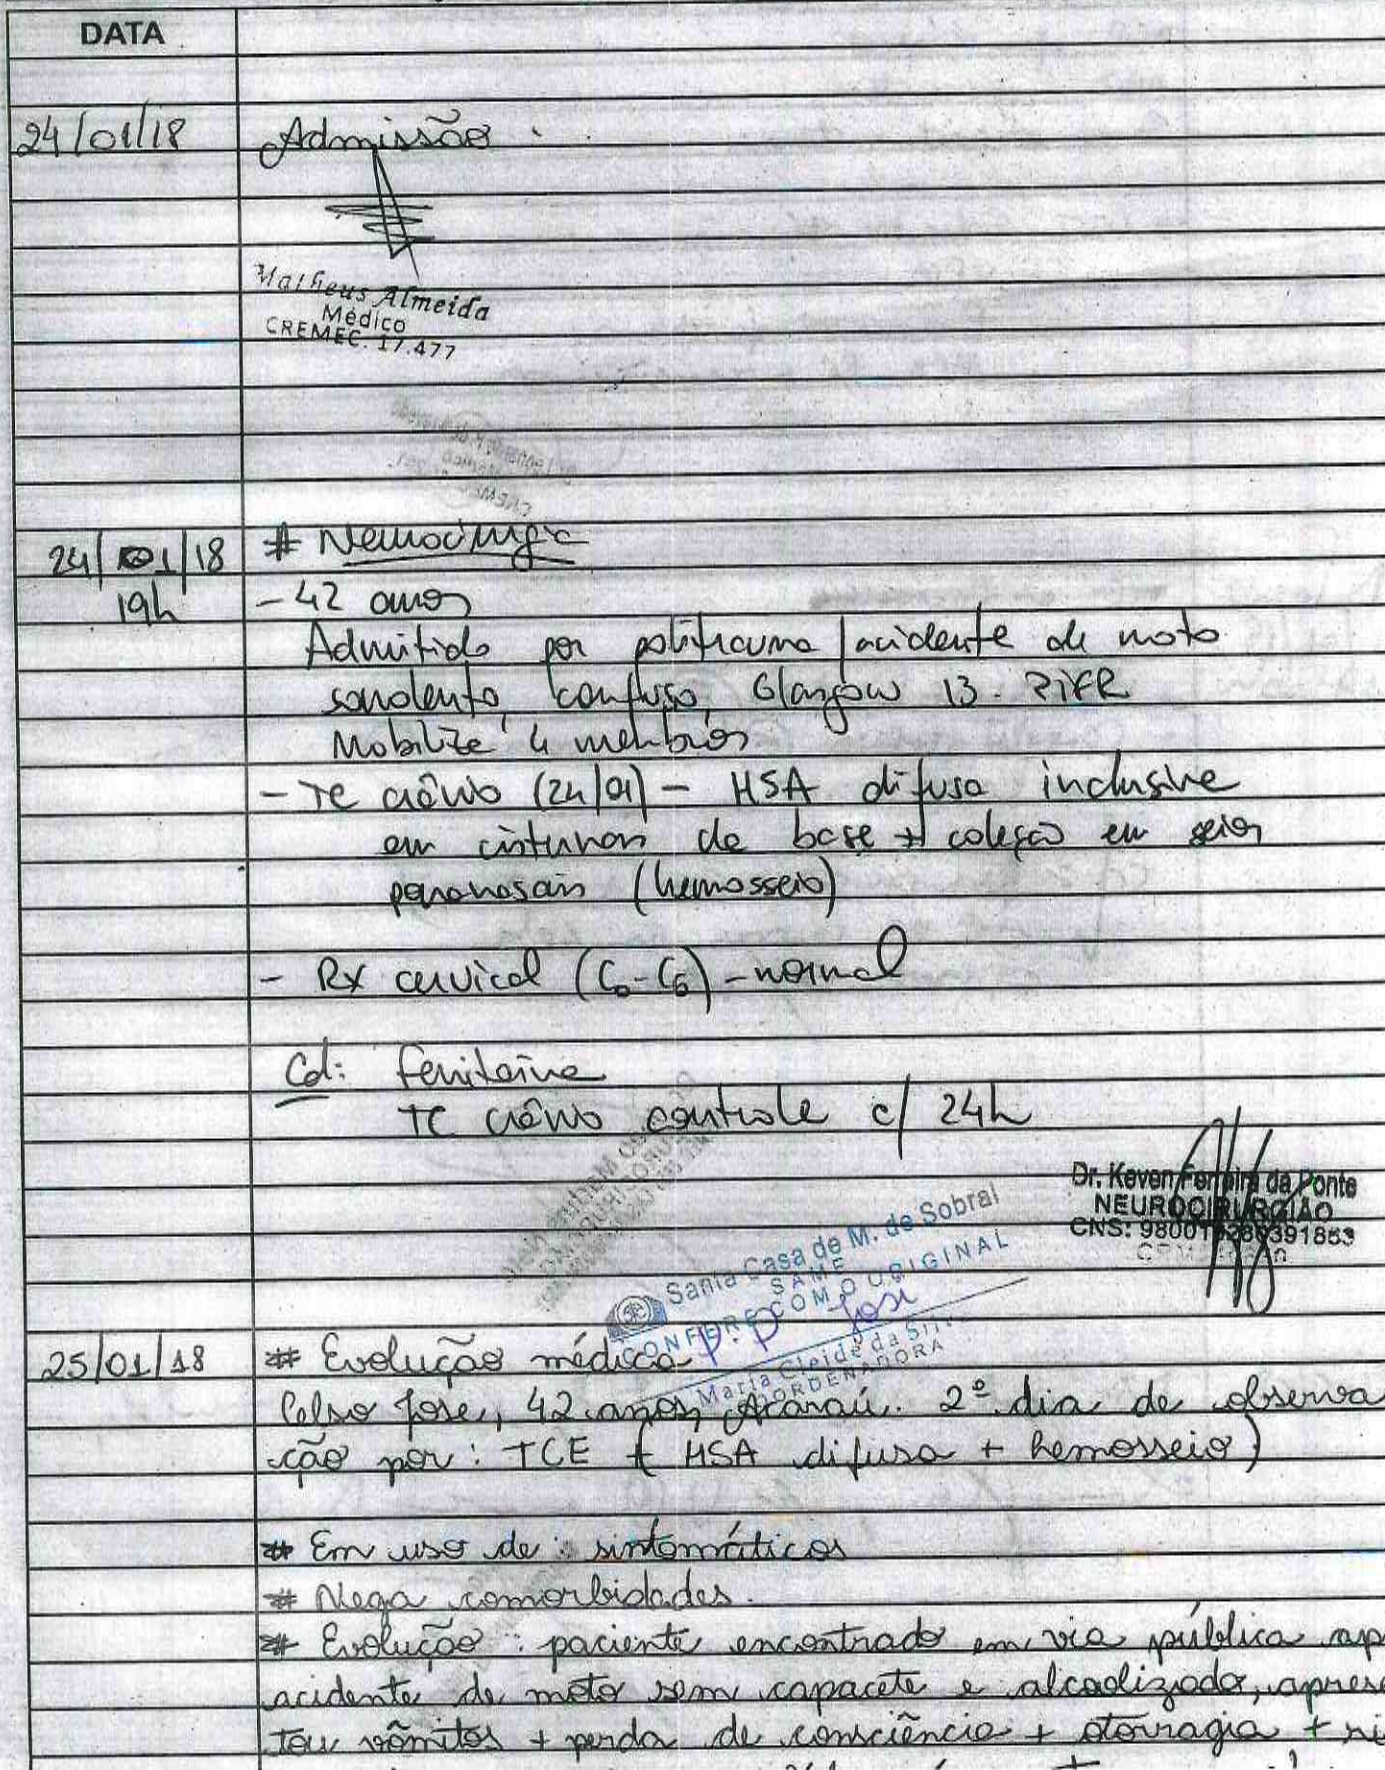 DATA
24/01/18 Admissão
Matheus Almeida
Médico
CREMEC. 17.477
24/01/18 # Neurocirurgia
19h - 42 anos
Admitido por politrauma / acidente de moto
sonolento, confuso, Glasgow 13. PIFR
Mobiliza 4 membros
- TC crânio (24/01) - HSA difusa inclusive
em cisternas de base + coleção em seios
paranasais (hemosseio)
- RX cervical (C0-C6) - normal
Cd: Fenitoína
TC crânio controle c/ 24h
Dr. Keven Ferreira da Ponte
NEUROCIRURGIÃO
CNS:
Santa Casa de M. de Sobral
SAME
CONFERE COM O ORIGINAL
P.P José
Maria Cleide da
COORDENADORA
25/01/18 # Evolução médica
Celso José, 42 anos, Acaraú. 2º dia de observa
ção por: TCE (HSA difusa + hemosseio)
# Em uso de: sintomáticos
# Nega comorbidades.
# Evolução: paciente encontrado em via pública
acidente de moto sem capacete e alcoolizado, apresen
tou vômitos + perda de consciência + otorragia +